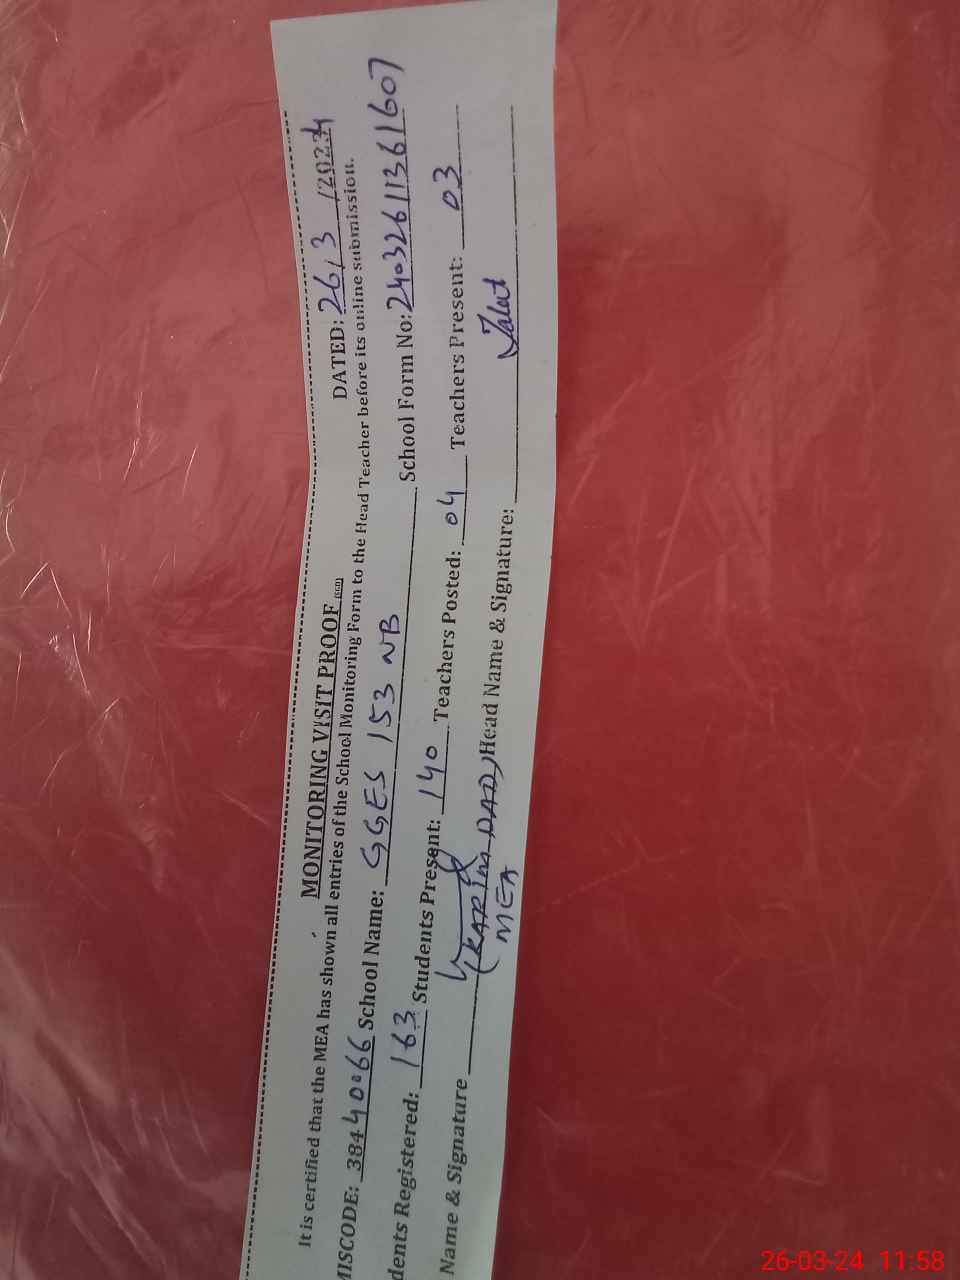 MONITORING VISIT PROOF (SCD) DATED: 26/3/2024
It is certified that the MEA has shown all entries of the School Monitoring Form to the Head Teacher before its online submission.
MISCODE: 38440066 School Name: GGES 153 NB School Form No: 24032611361607
dents Registered: 163 Students Present: 140 Teachers Posted: 04 Teachers Present: 03
Name & Signature (KARIM DAD) Head Name & Signature:
MEA
26-03-24 11:58